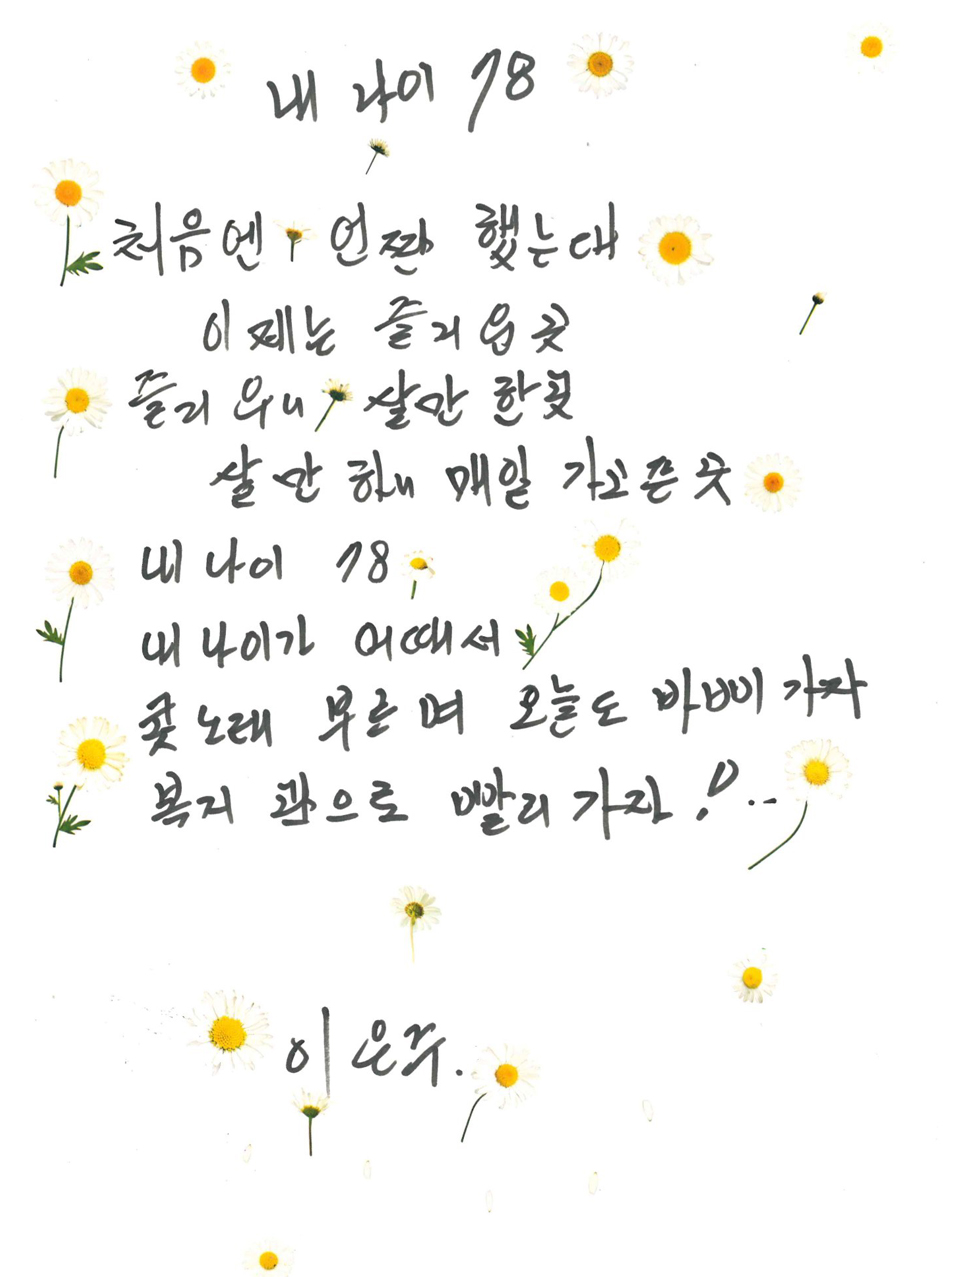 내 나이 78
처음엔 언짠 했는대
이제는 즐거운 곳
즐거우니 살만 한곳
살만 하니 매일 가고픈 곳
내 나이 78
내 나이가 어때서
콧노래 부르며 오늘도 바삐 가자
복지관으로 빨리 가자!..
이은주.